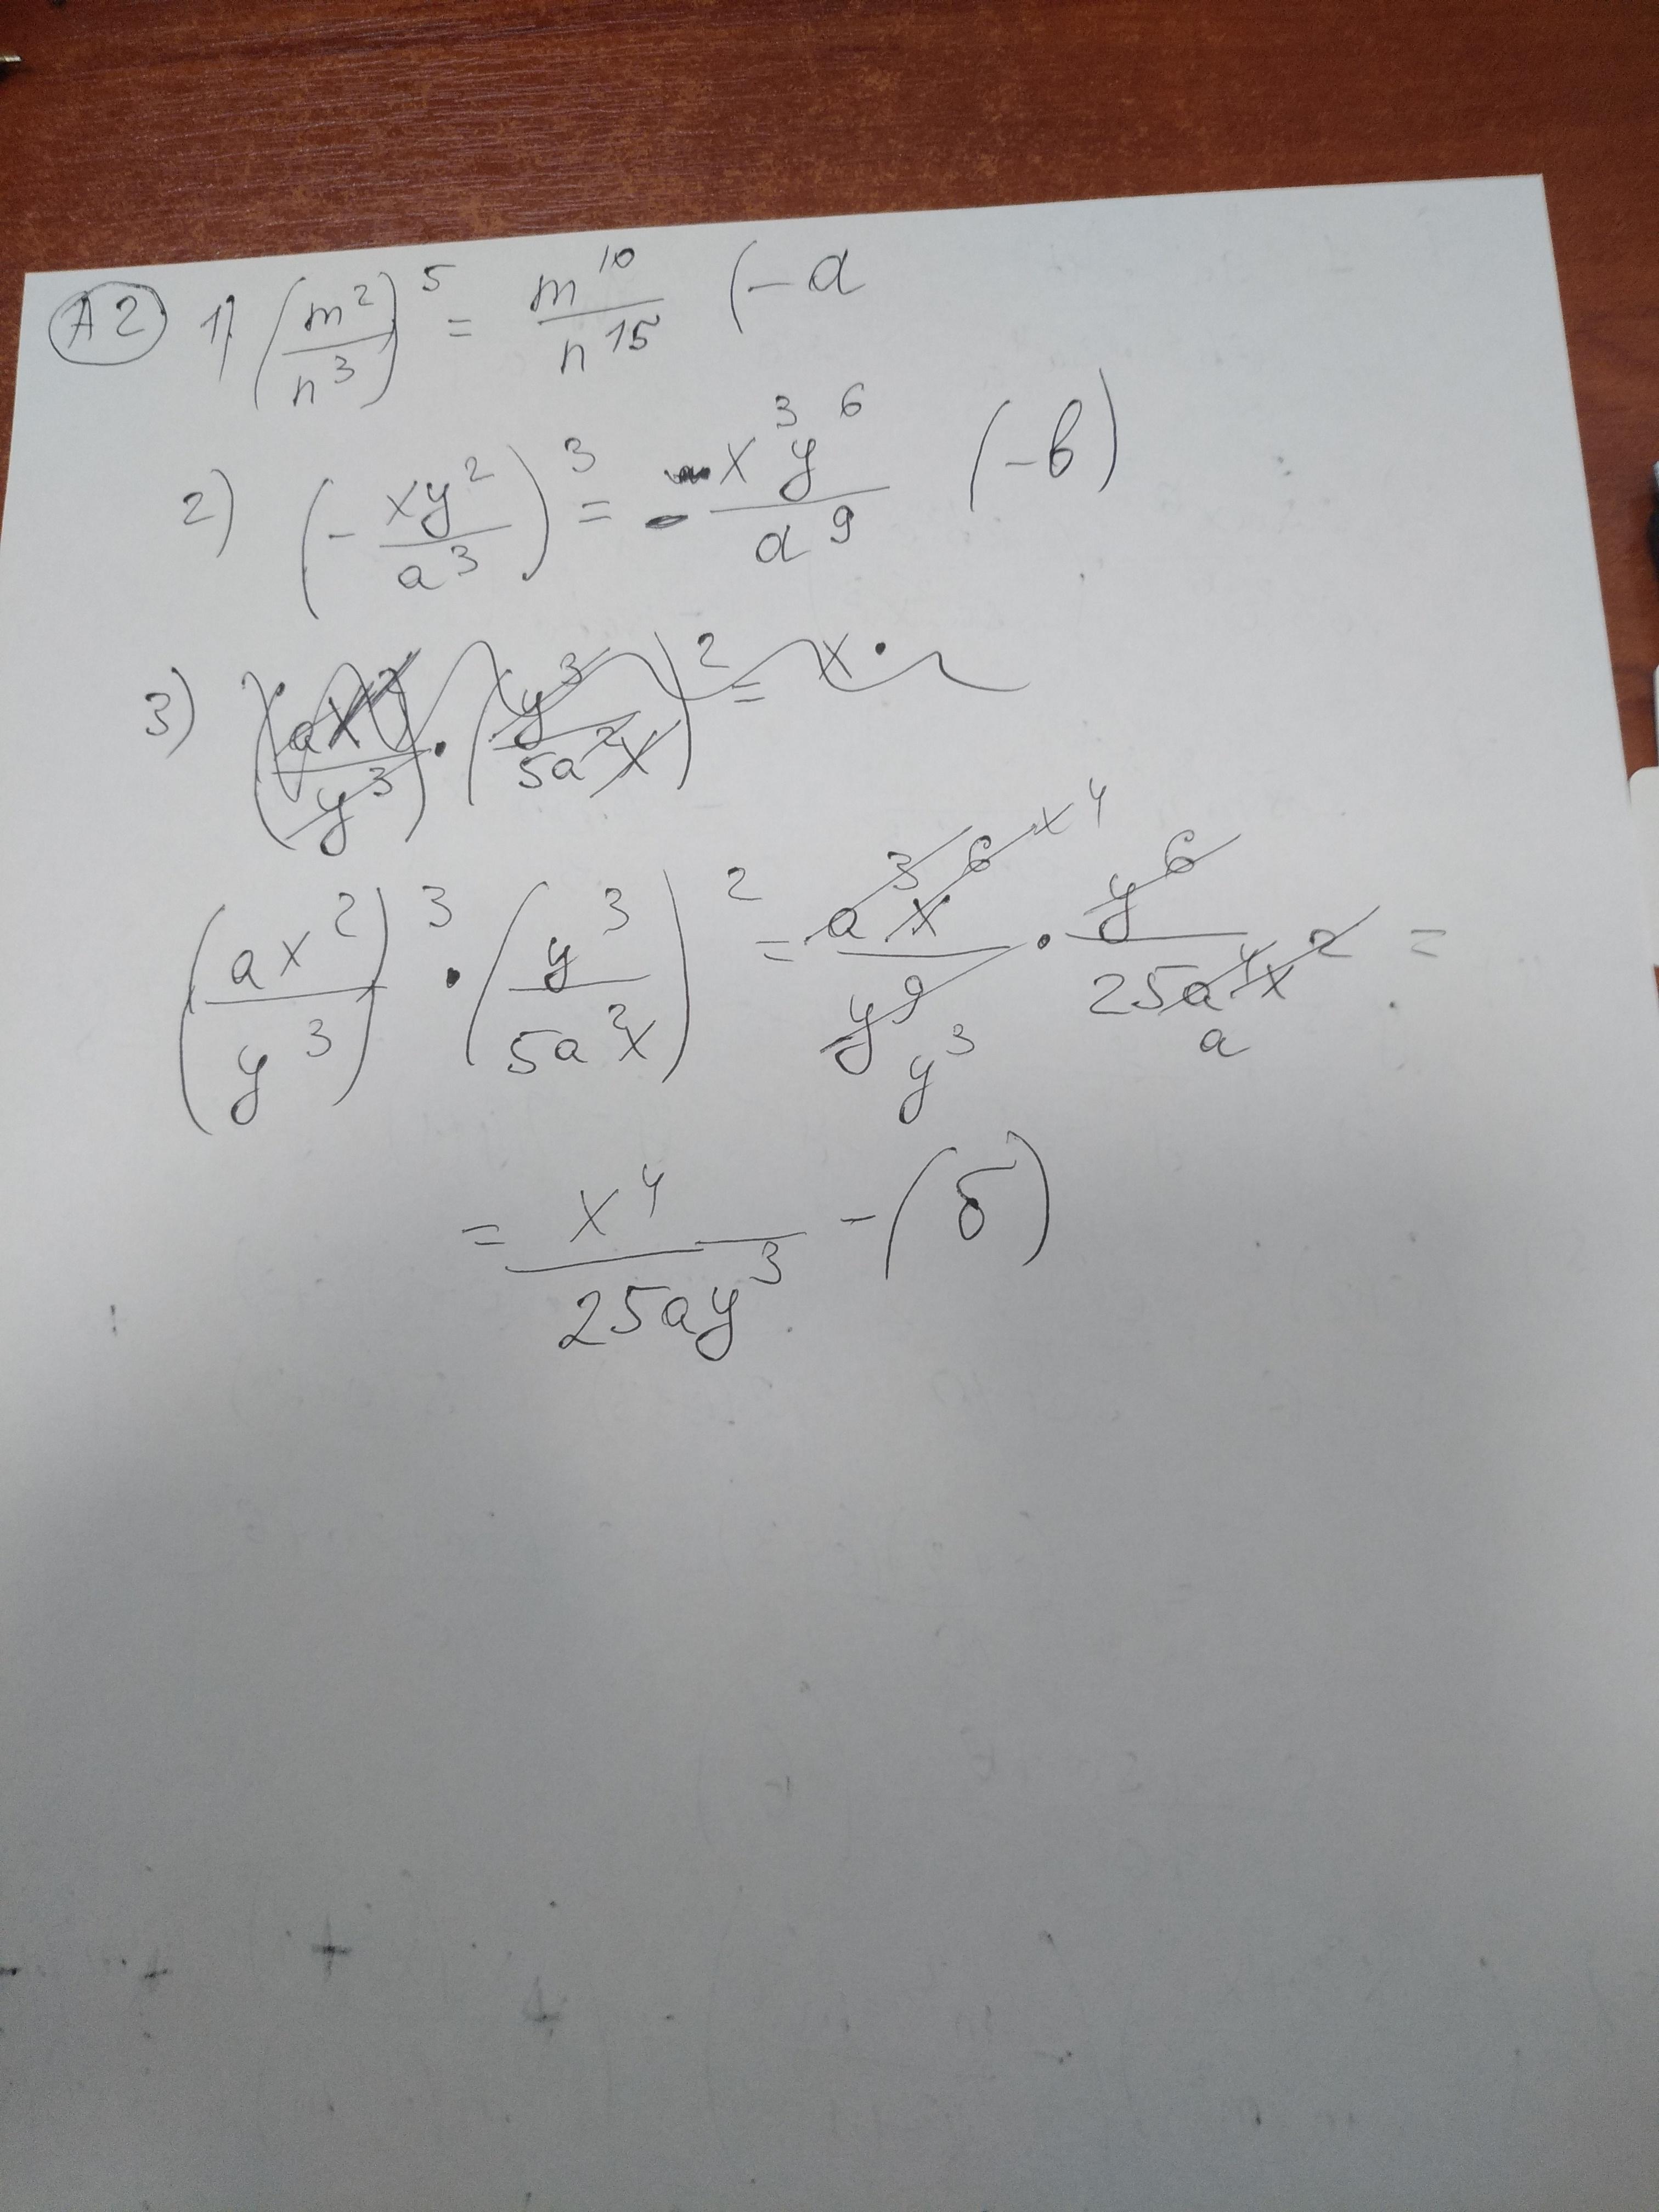 А2 1) (m²/n³)⁵ = m¹⁰/n¹⁵ (–а
2) (– xy²/a³)³ = – x³y⁶/a⁹ (–в)
3) (ax²/y³) · (y³/5a²x)² = x ·
(ax²/y³)³ · (y³/5a²x)² = a³x⁶ x⁴/y⁹ y³ · y⁶/25a⁴x² a =
= x⁴/25ay³ – (б)